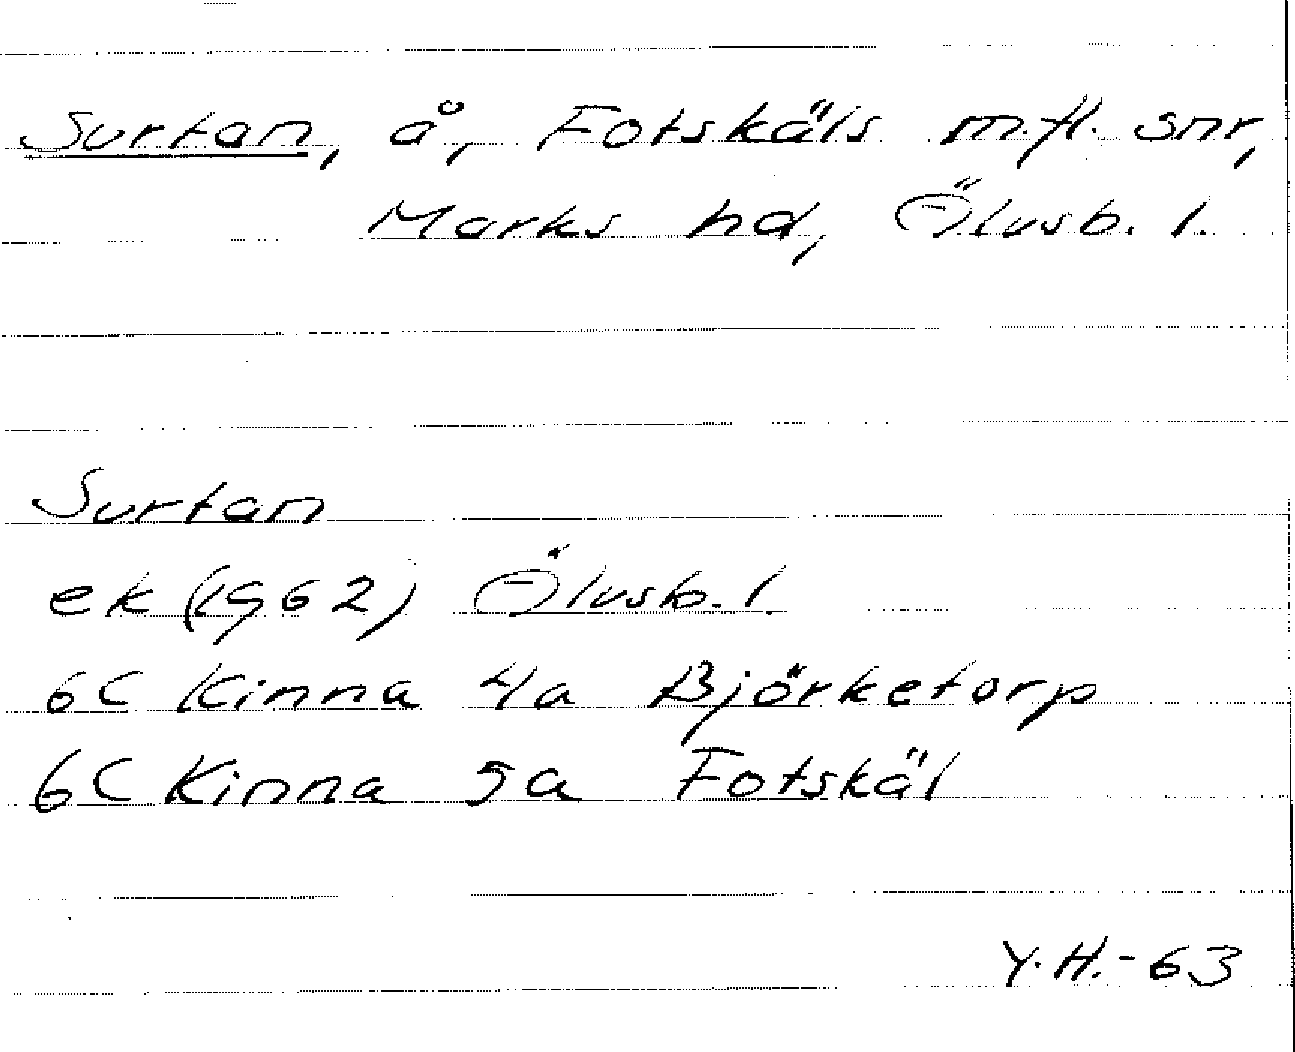 Surtan, å, Fotskäls m.fl. snr,
Marks hd, Älvsb. l.
Surtan
ek (1962) Älvsb. l.
6C Kinna 4a Björketorp
6C Kinna 5a Fotskäl
Y.H.-63